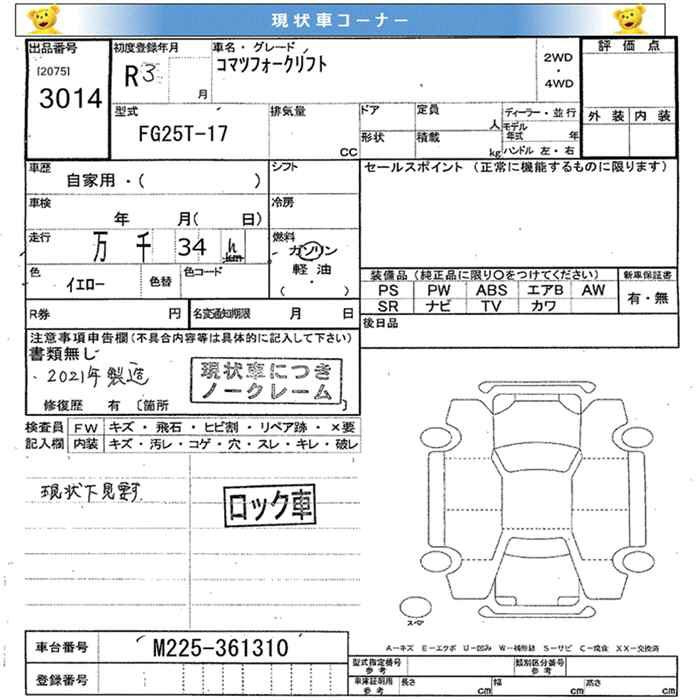 現状車コーナー
出品番号
[2075]
3014
初度登録年月
R3
月
車名・グレード
コマツフォークリフト
2WD
・
4WD
評価点
外装 内装
型式
FG25T-17
排気量
CC
ドア
定員
人
形状
積載
kg
ディーラー・並行
モデル
年式
年
ハンドル 左・右
車歴
自家用・( )
シフト
セールスポイント (正常に機能するものに限ります)
車検
年 月( 日)
冷房
走行
万 千 34 h
km
燃料
ガソリン
・
軽油
( )
色
イエロー
色替
色コード
装備品 (純正品に限り○をつけてください)
新車保証書
PS PW ABS エアB AW
SR ナビ TV カワ
有・無
R券
円
名変通知期限
月 日
後日品
注意事項申告欄(不具合内容等は具体的に記入して下さい)
書類無し
・2021年製造
現状車につき
ノークレーム
修復歴 有 〔箇所 〕
検査員
記入欄
FW キズ・飛石・ヒビ割・リペア跡・×要
内装 キズ・汚レ・コゲ・穴・スレ・キレ・破レ
現状下見要す
ロック車
スペア
A－キズ E－エクボ U－凹み W－補修跡 S－サビ C－腐食 XX－交換済
車台番号
M225-361310
登録番号
型式指定番号
参考
類別区分番号
参考
車庫証明用
参考
長さ
cm
幅
cm
高さ
cm